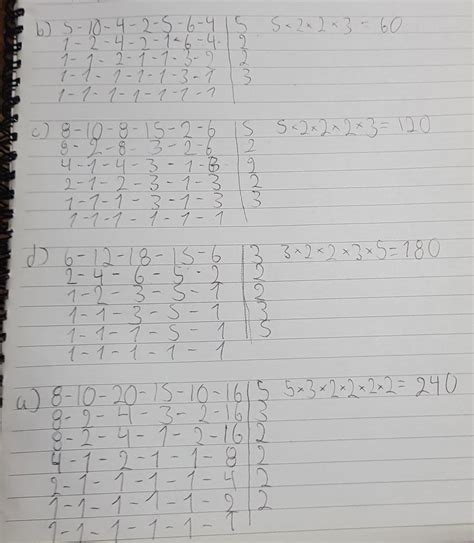 b) 5-10-4-2-5-6-4 | 5 5×2×2×3=60
1-2-4-2-1-6-4 | 2
1-1-2-1-1-3-2 | 2
1-1-1-1-1-3-1 | 3
1-1-1-1-1-1-1
c) 8-10-8-15-2-6 | 5 5×2×2×2×3=120
8-2-8-3-2-6 | 2
4-1-4-3-1-3 | 2
2-1-2-3-1-3 | 2
1-1-1-3-1-3 | 3
1-1-1-1-1-1
d) 6-12-18-15-6 | 3 3×2×2×3×5=180
2-4-6-5-2 | 2
1-2-3-5-1 | 2
1-1-3-5-1 | 3
1-1-1-5-1 | 5
1-1-1-1-1
a) 8-10-20-15-10-16 | 5 5×3×2×2×2×2=240
8-2-4-3-2-16 | 3
8-2-4-1-2-16 | 2
4-1-2-1-1-8 | 2
2-1-1-1-1-4 | 2
1-1-1-1-1-2 | 2
1-1-1-1-1-1